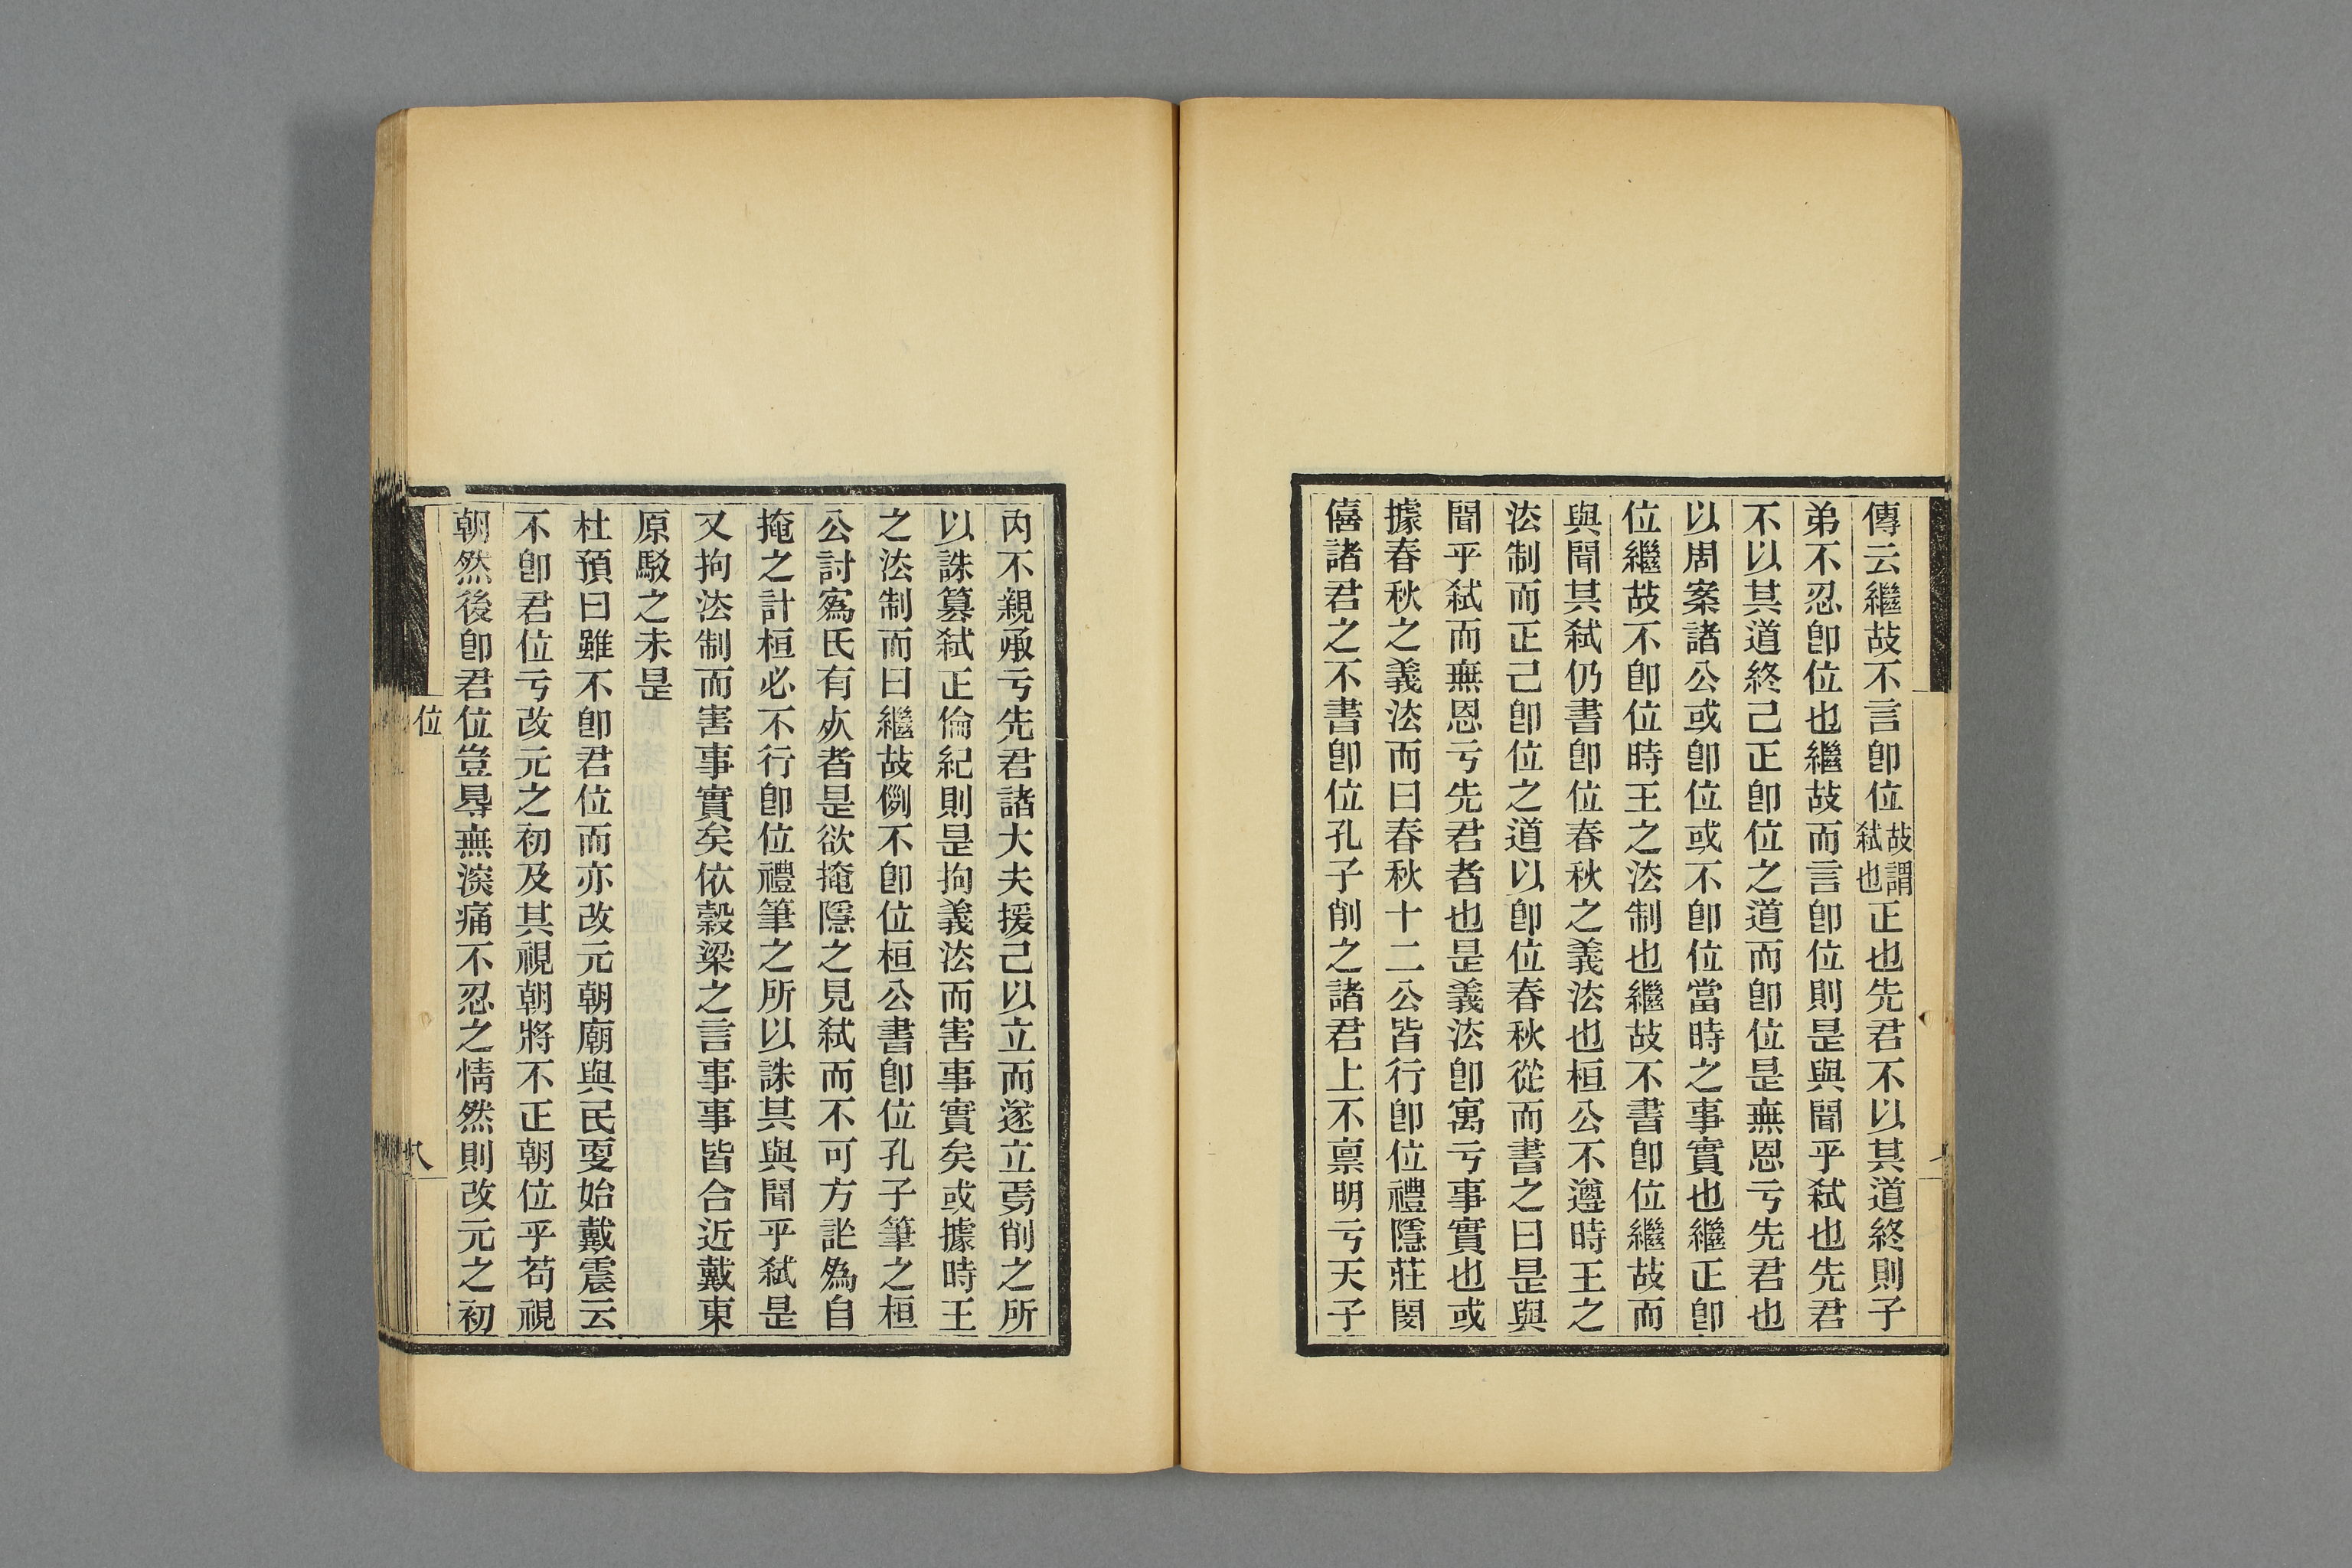 傳云繼故不言卽位故謂弑也正也先君不以其道終則子
弟不忍卽位也繼故而言卽位則是與聞乎弑也先君
不以其道終己正卽位之道而卽位是無恩亏先君也
以周案諸公或卽位或不卽位當時之事實也繼正卽
位繼故不卽位時王之法制也繼故不書卽位繼故而
與聞其弑仍書卽位春秋之義法也桓公不遵時王之
法制而正己卽位之道以卽位春秋從而書之曰是與
聞乎弑而無恩亏先君者也是義法卽寓亏事實也或
據春秋之義法而曰春秋十二公皆行卽位禮隱莊閔
僖諸君之不書卽位孔子削之諸君上不稟明亏天子
內不親承亏先君諸大夫援己以立而遂立焉削之所
以誅篡弑正倫紀則是拘義法而害事實矣或據時王
之法制而曰繼故例不卽位桓公書卽位孔子筆之桓
公討寪氏有䠶者是欲掩隱之見弑而不可方訿爲自
掩之計桓必不行卽位禮筆之所以誅其與聞乎弑是
又拘法制而害事實矣依穀梁之言事事皆合近戴東
原駁之未是
杜預曰雖不卽君位而亦改元朝廟與民更始戴震云
不卽君位亏改元之初及其視朝將不正朝位乎苟視
朝然後卽君位豈㝵無深痛不忍之情然則改元之初
位
八